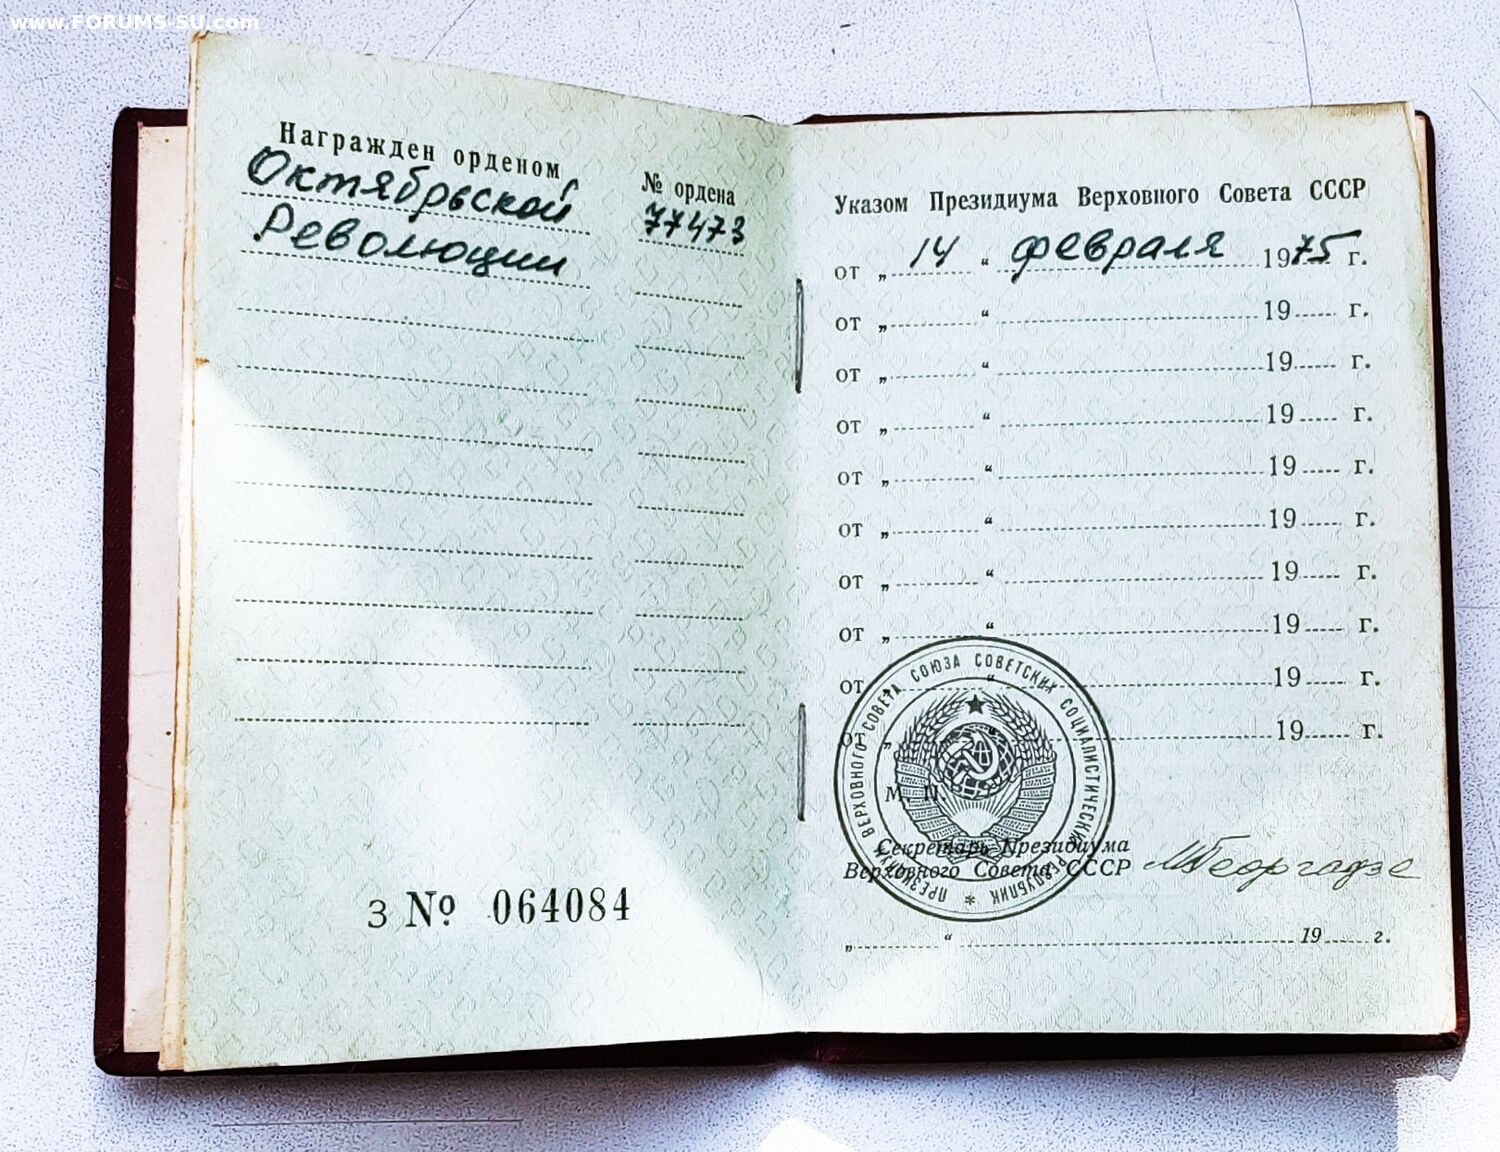 www.FORUMS-SU.com
Награжден орденом
Октябрьской
Революции
№ ордена
77473
З № 064084
Указом Президиума Верховного Совета СССР
от „ 14 “ февраля 1975 г.
от „ “ 19 г.
от „ “ 19 г.
от „ “ 19 г.
от „ “ 19 г.
от „ “ 19 г.
от „ “ 19 г.
от „ “ 19 г.
от „ “ 19 г.
от „ 19 г.
ПРЕЗИДИУМ ВЕРХОВНОГО СОВЕТА СОЮЗА СОВЕТСКИХ СОЦИАЛИСТИЧЕСКИХ РЕСПУБЛИК *
М. П.
Секретарь Президиума
Верховного Совета СССР МГеоргадзе
„ “ 19 г.